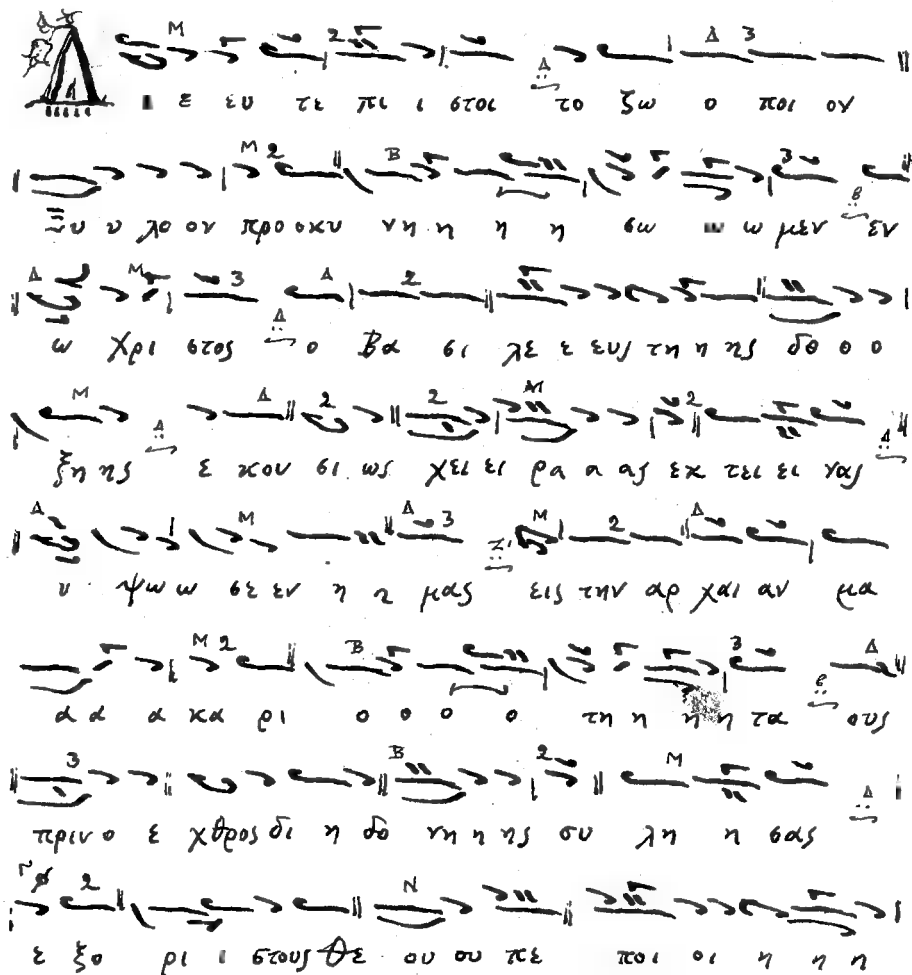 M 2 Δ 3
Δ ε ευ τε πι ι στοι Δ το ζω ο ποι ον
M 2 B 3
Ξυ υ λο ον προσκυ νη η η η σω ω ω μεν εν
Δ M 3 Δ 2
ω Χρι στος Δ ο Βα σι λε ε ευς τη η ης δο ο ο
M Δ 2 2 M 2
ξη ης Δ ε κου σι ως χει ει ρα α ας εκ τει ει νας Δ
Δ M Δ 3 M 2 Δ
υ ψω ω σε εν η η μας Ζ' εις την αρ χαι αν μα
M 2 B 3 Δ
α α α κα ρι ο ο ο ο τη η η η τα ους
3 B 2 M
πριν ο ε χθρος δι η δο νη η ης συ λη η σας Δ
2 N
ε ξο ρι ι στους Θε ου ου πε ποι οι η η η